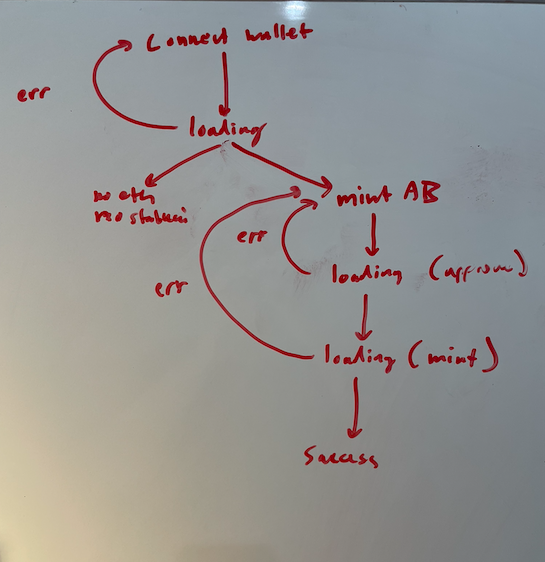 Connect wallet
err
loading
no eth
no stablecoin
mint AB
err
loading (approve)
err
loading (mint)
Success